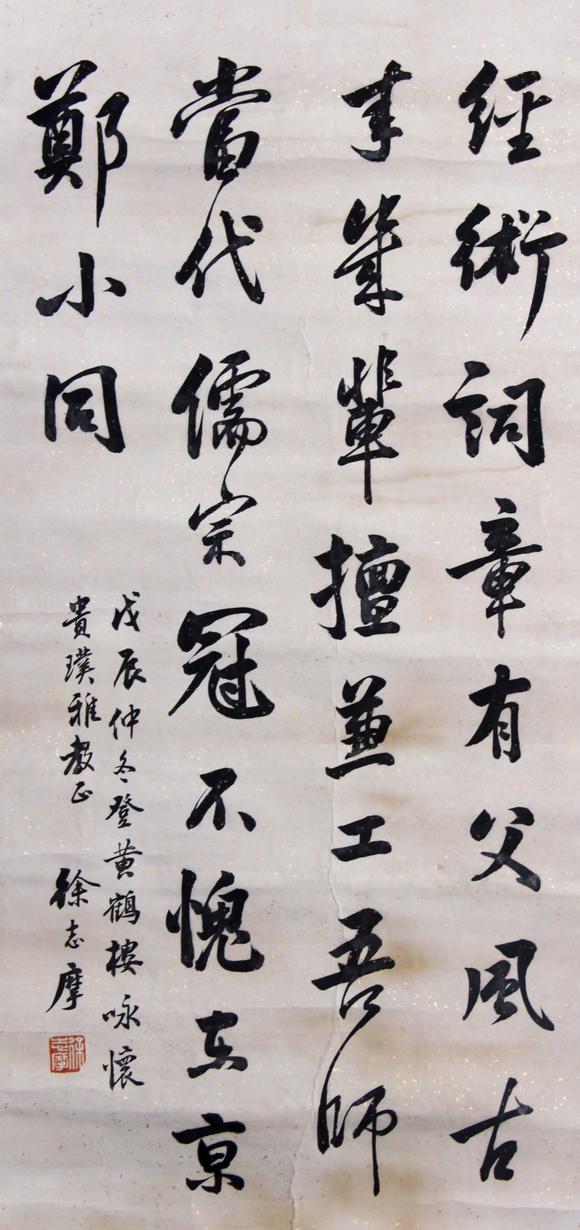 經術詞章有父風古
来幾輩擅兼工吾師
當代儒宗冠不愧东京
鄭小同
戊辰仲冬登黄鶴樓咏懷
貴璞雅教正
徐志摩
徐志摩